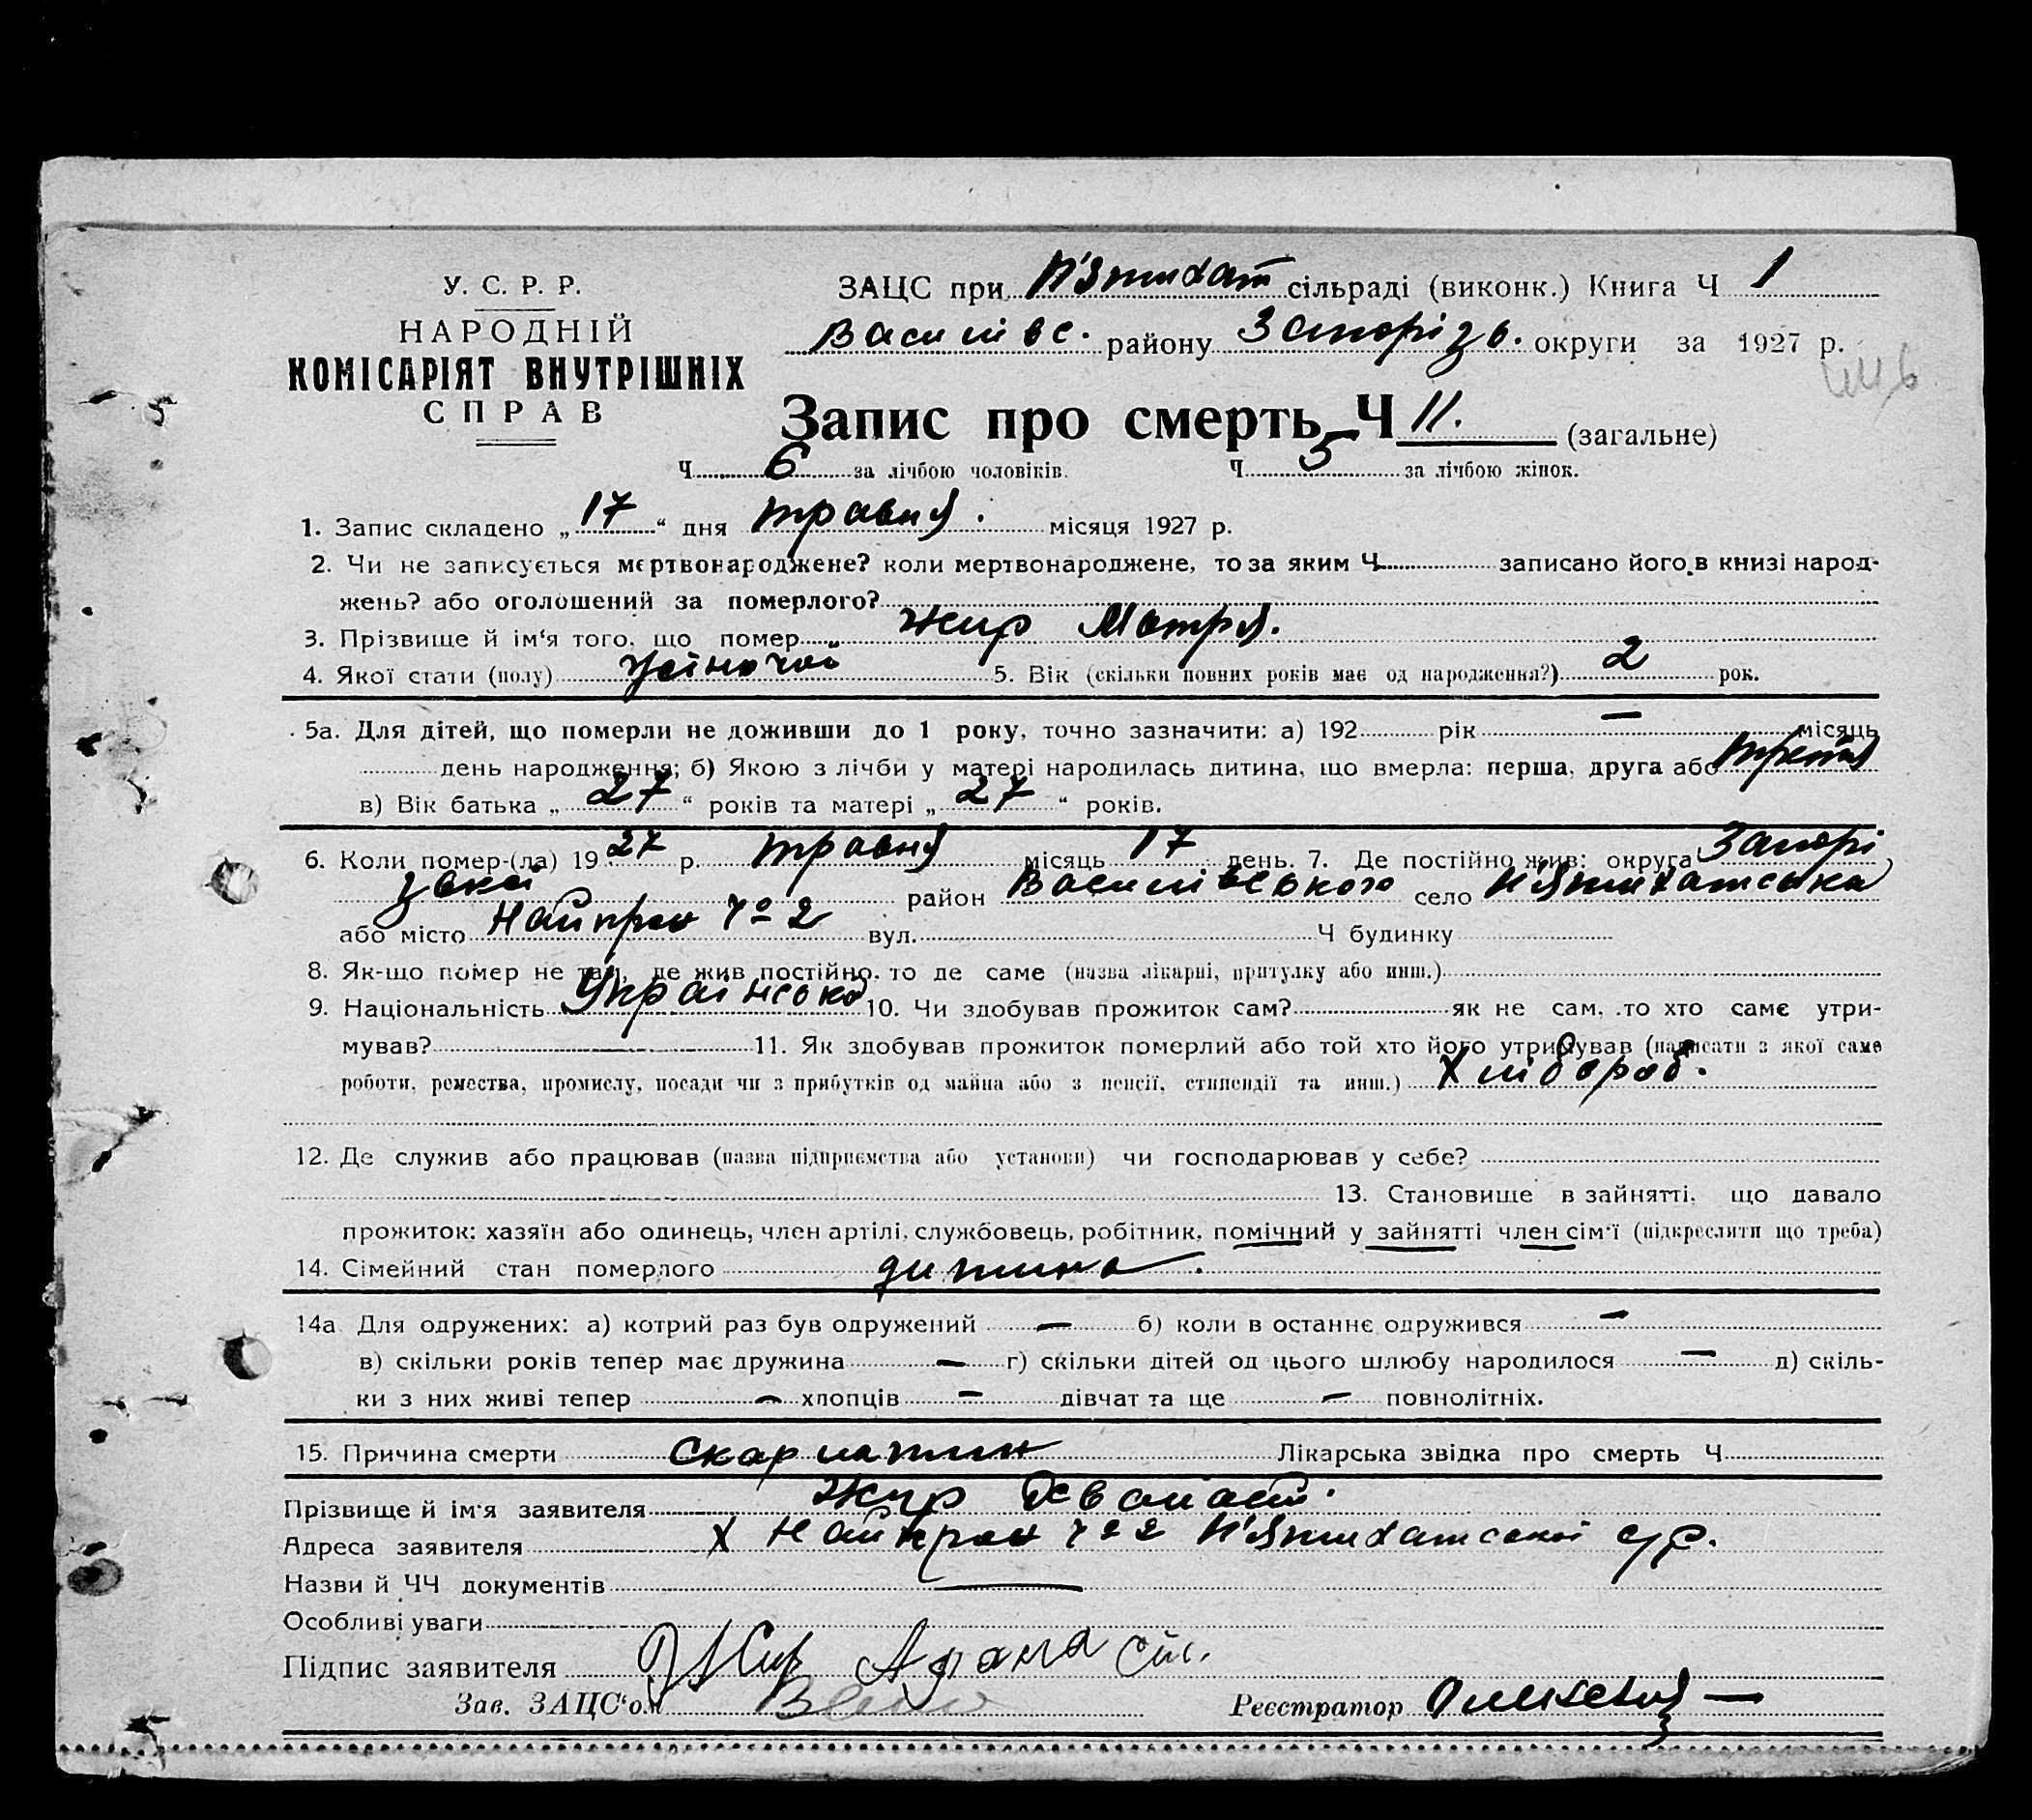 У. С. Р. Р.
НАРОДНІЙ
КОМІСАРІЯТ ВНУТРІШНІХ
СПРАВ
ЗАЦС при П'ятихат сільраді (виконк.) Книга Ч 1
Василівс. району Запорізь. округи за 1927 р.
Запис про смерть Ч 11. (загальне)
Ч 6 за лічбою чоловіків. Ч 5 за лічбою жінок.
1. Запис складено „ 17 “ дня травня. місяця 1927 р.
2. Чи не записується мертвонароджене? коли мертвонароджене, то за яким Ч записано його в книзі народ-
жень? або оголошений за померлого?
3. Прізвище й ім‘я того, що помер Жир Мотря.
4. Якої стати (полу) жіночой 5. Вік (скільки повних років має од народження?) 2 рок.
5а. Для дітей, що померли не доживши до 1 року, точно зазначити: а) 192 рік — місяць
день народження; б) Якою з лічби у матері народилась дитина, що вмерла: перша, друга або третя
в) Вік батька „ 27 “ років та матері „ 27 “ років.
6. Коли помер-(ла) 19 27 р. травня місяць 17 день. 7. Де постійно жив: округа Запорі
зької район Василівського село П'ятихатська
або місто Найпрон чо 2 вул. Ч будинку
8. Як-що помер не там, де жив постійно, то де саме (назва лікарні, притулку або инш.)
9. Національність Українська 10. Чи здобував прожиток сам? як не сам, то хто саме утри-
мував? 11. Як здобував прожиток померлий або той хто його утримував (написати з якої саме
роботи, ремества, промислу, посади чи з прибутків од майна або з пенсії, стипендії та инш.) Хлібороб.
12. Де служив або працював (назва підприємства або установи) чи господарював у себе?
13. Становище в зайнятті, що давало
прожиток: хазяїн або одинець, член артілі, службовець, робітник, помічний у зайнятті член сім‘ї (підкреслити що треба)
14. Сімейний стан померлого дитина.
14а Для одружених: а) котрий раз був одружений — б) коли в останнє одружився —
в) скільки років тепер має дружина — г) скільки дітей од цього шлюбу народилося — д) скіль-
ки з них живі тепер — хлопців — дівчат та ще — повнолітніх.
15. Причина смерти скарлатин Лікарська звідка про смерть Ч
Прізвище й ім‘я заявителя Жир
Адреса заявителя х Найпрон чо 2 П'ятихатської с/р.
Назви й ЧЧ документів —
Особливі уваги
Підпис заявителя Жир
Зав. ЗАЦС‘ом
Реєстратор